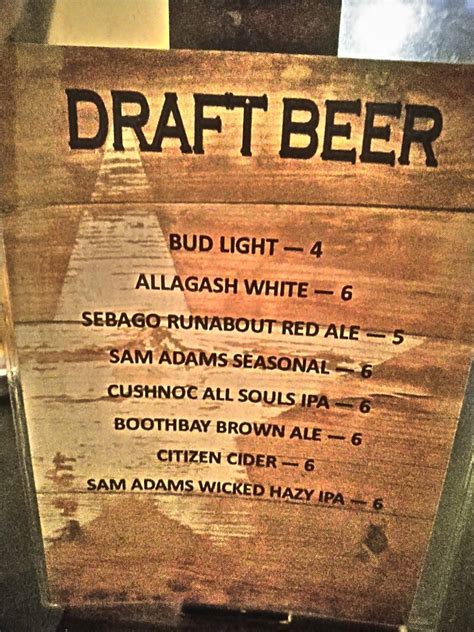 DRAFT BEER
BUD LIGHT — 4
ALLAGASH WHITE — 6
SEBAGO RUNABOUT RED ALE — 5
SAM ADAMS SEASONAL — 6
CUSHNOC ALL SOULS IPA — 6
BOOTHBAY BROWN ALE — 6
CITIZEN CIDER — 6
SAM ADAMS WICKED HAZY IPA — 6